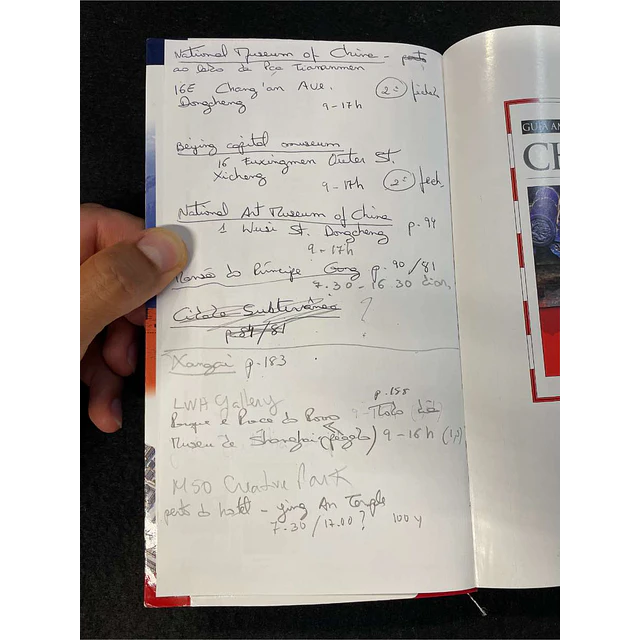 National Museum of China -
ao lado da Pça Tiananmen
16E Chang'an Ave. 2ª
Dongcheng 9-17h
Beijing capital museum
16 Fuxingmen Outer St.
Xicheng 9-17h 2ª fech.
National Art Museum of China
1 Wusi St. Dongcheng p.94
9-17h
Mansão do Príncipe Gong p.90/81
7.30-16.30
Cidade Subterrânea ?
p.84/81
Xangai p.183
LWH Gallery p.188
Parque e Praça do Povo 9-
Museu de Shanghai 9-16h
M50 Creative Park
perto do hotel - Jing An Temple
7.30/17.00? 100 y
GUIA
CH